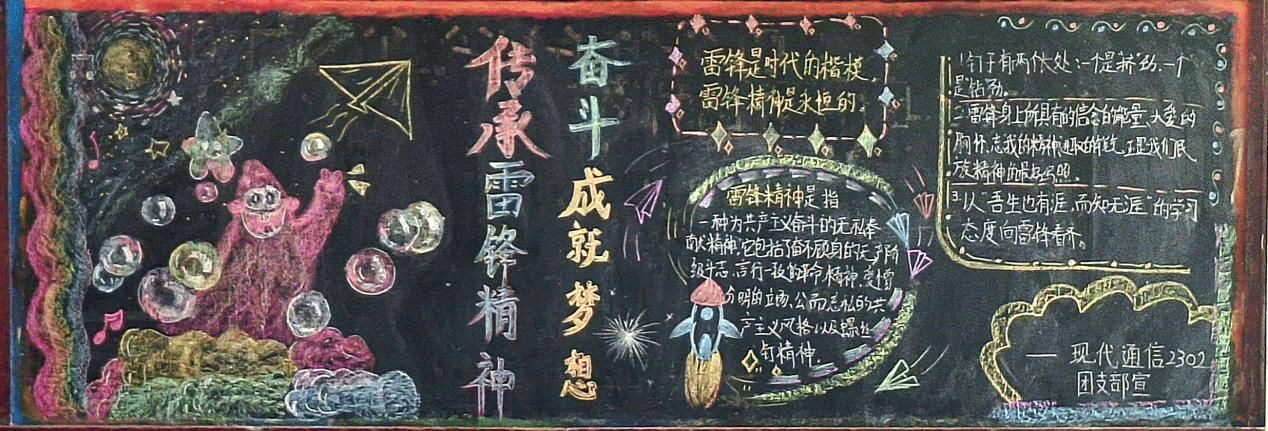 传承雷锋精神
奋斗成就梦想
雷锋是时代的楷模,
雷锋精神是永恒的。
雷锋精神是指
一种为共产主义奋斗的无私奉
献精神,它包括奋不顾身的无产阶
级斗志,言行一致的革命精神,爱憎
分明的立场,公而忘私的共
产主义风格以及螺丝
钉精神。
1钉子有两个长处:一个是挤劲,一个
是钻劲。
二雷锋身上所具有的信念的能量、大爱的
胸怀、忘我的精神、进取的锐气,正是我们民
族精神的最好写照。
3.以“吾生也有涯,而知无涯”的学习
态度向雷锋看齐。
— 现代通信2302
团支部宣